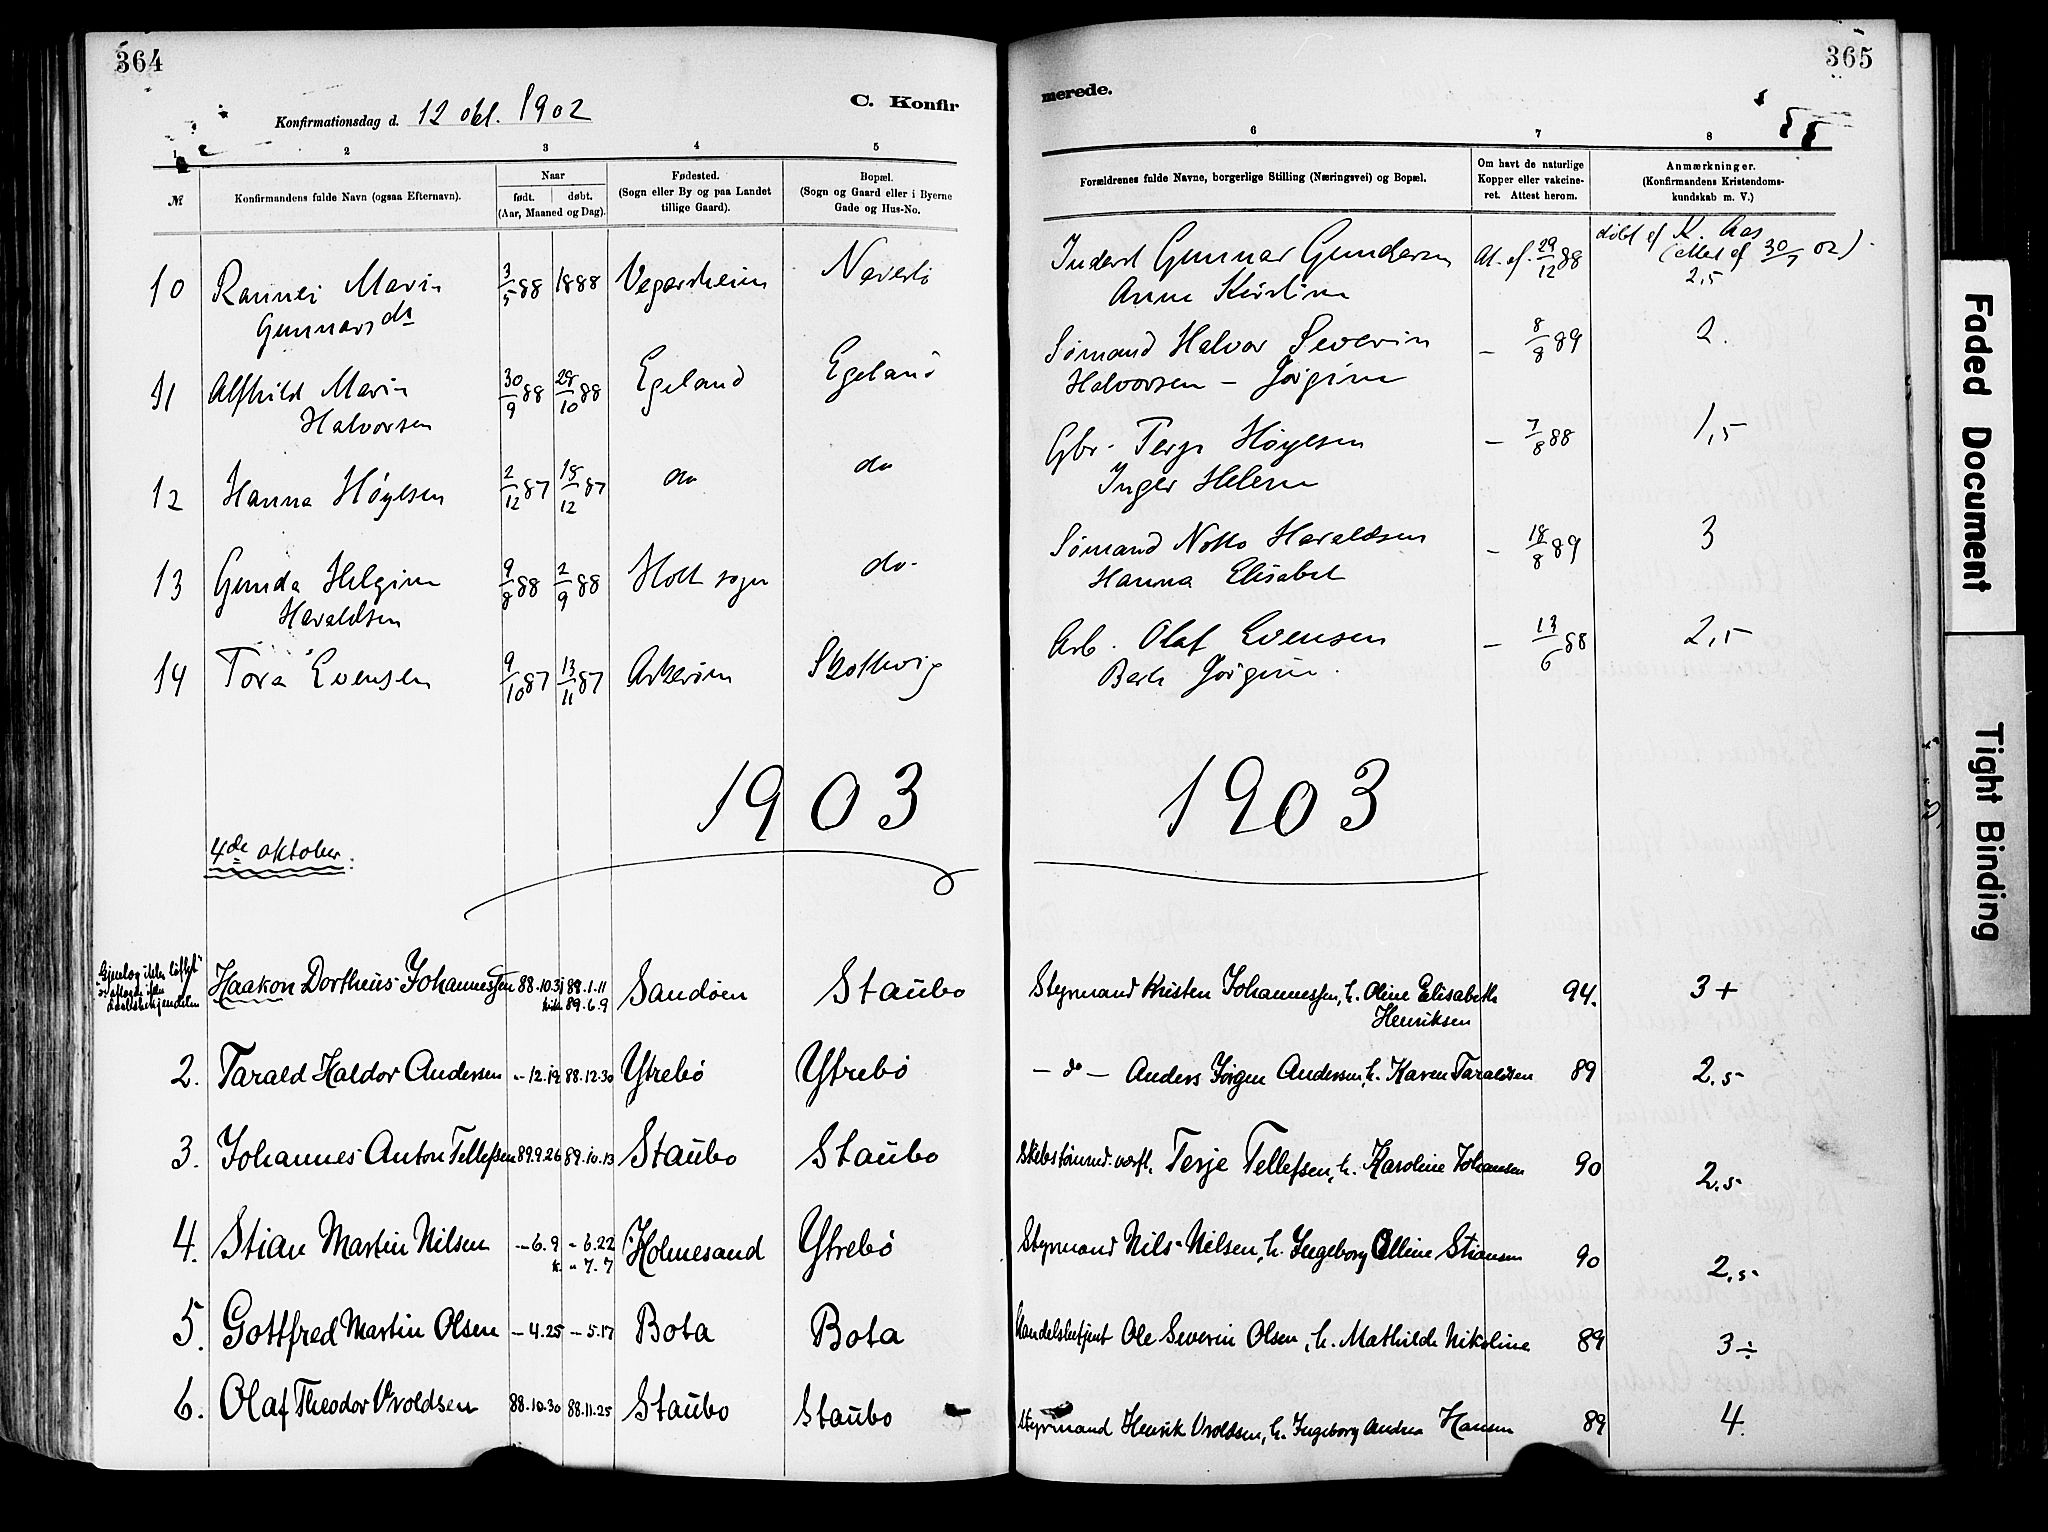 364
C. Konfir
Konfirmationsdag d. 12 okt. 1902
1 2 3 4 5
№
Konfirmandens fulde Navn (ogsaa Efternavn).
Naar
født. døbt.
(Aar, Maaned og Dag).
Fødested.
(Sogn eller By og paa Landet
tillige Gaard).
Bopæl.
(Sogn og Gaard eller i Byerne
Gade og Hus-No.
10 Rannei Marie 3/5 88 1888 Vegarsheien
Gunnarsdr
11 Alfhild Marie 30/9 88 28/10 88 Egeland Egeland
Halvorsen
12 Hanna Høyesen 2/12 87 18/12 87 do do
13 Gunda Helgine 9/8 88 2/9 88 Holt sogn do.
Haraldsen
14 Tora Evensen 9/10 87 13/11 87 Askerøen Skottevig
1903
4de oktober.
Haakon Dortheus Johannessen 88.10.31 88.1.11 Sandøen Staubo
89.6.9
2. Tarald Haldor Andersen -"-12.14 88.12.30 Ytrebø Ytrebø
3. Johannes Anton Tellefsen 89.9.26 89.10.13 Staubo Staubo
4. Stian Martin Nilsen -"-6.9 -"6.22 Holmesand Ytrebø
k. -"7.7
5. Gottfred Martin Olsen -4.25 -5.17 Bota Bota
6. Olaf Theodor Vroldsen 88.10.30 88.11.25 Staubo Staubo
365
merede.
6 7 8
Forældrenes fulde Navne, borgerlige Stilling (Næringsvei) og Bopæl.
Om havt de naturlige
Kopper eller vakcine-
ret. Attest herom.
Anmærkninger.
(Konfirmandens Kristendoms-
kundskab m. V.)
Inderst Gunnar Gundersen At. af 29/12 88 døbt af K. Aas
(attest af 30/7 02).
Anne Kirstine 2,5
Sømand Halvor Severin - 8/8 89 2.
Halvorsen - Jørgine
Gbr. Terje Høyesen - 7/8 88 1,5
Inger Helene
Sømand Notto Haraldsen - 18/8 89 3
Hanna Elisabet
Arb. Olaf Evensen - 13/6 88 2,5
Berte Jørgine.
1903
Styrmand Kristen Johannessen, h. Oline Elisabeth 94. 3+
Henriksen
- do - Anders Jørgen Andersen, h. Karen Taraldsen 89 2.5
Terje Tellefsen, h. Karoline Johansen 90 2.5
Styrmand Nils Nilsen, h. Ingeborg Olline Stiansen 90 2.5
Handelsbetjent Ole Severin Olsen, h. Mathilde Nikoline 89 3÷
Styrmand Henrik Vroldsen, h. Ingeborg Andrea Hansen 89 4.
Faded Document
Tight Binding